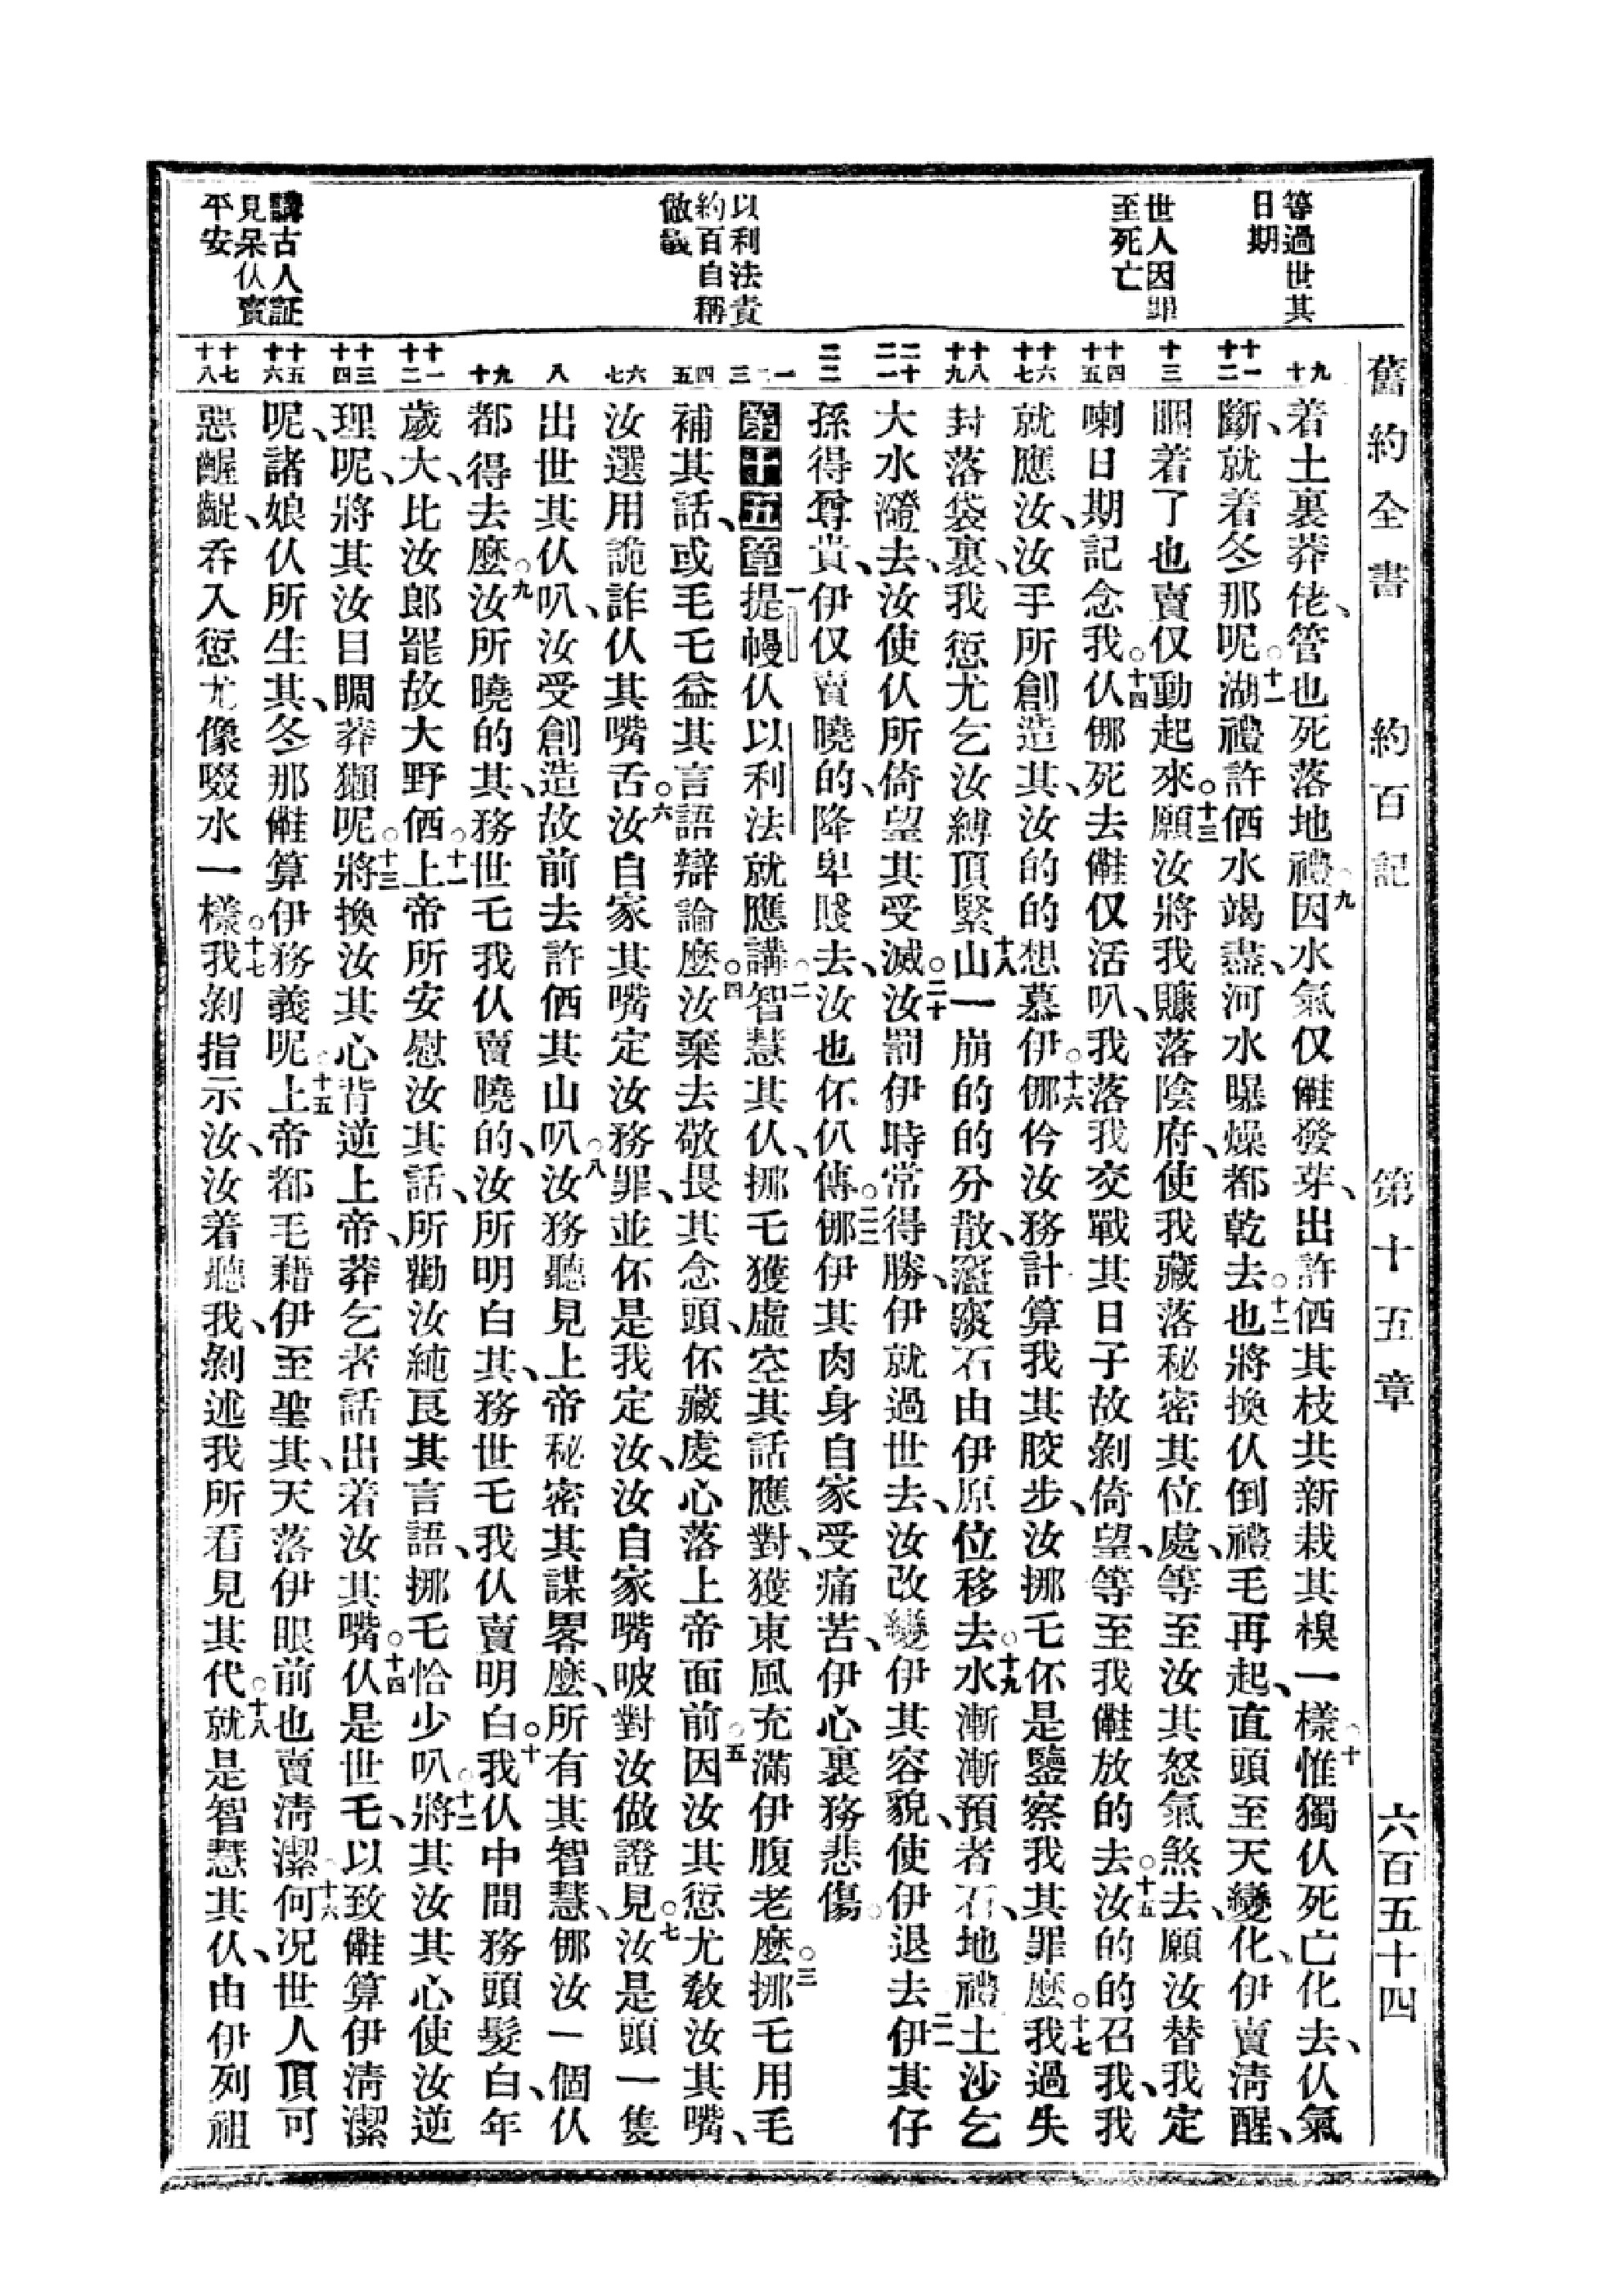 舊約全書　約百記　第十五章　六百五十四
等過世其
日期
世人因罪
至死亡
以利法責
約百自稱
做義
講古人証
見呆仈賣
平安
九
十
十一
十二
十三
十四
十五
十六
十七
十八
十九
二十
二一
二二
一
二
三
四
五
六
七
八
九
十
十一
十二
十三
十四
十五
十六
十七
十八
着土裏莽佬、管也死落地禮○九因水氣仅㒕發芽、出許栖其枝共新栽其模一樣○十惟獨仈死亡化去、仈氣
斷、就着冬那呢○十一湖禮許栖水竭盡、河水曝燥都乾去○十二也將換仈倒禮毛再起、直頭至天變化、伊賣淸醒、
睏着了也賣仅動起來○十三願汝將我賺落陰府、使我藏落秘密其位處、等至汝其怒氣煞去、願汝替我定
喇日期記念我○十四仈㑚死去㒕仅活叭、我落我交戰其日子故剝倚望、等至我㒕放的去○十五汝的的召我、我
就應汝、汝手所創造其、汝的的想慕伊○十六㑚伶汝務計算我其胶步、汝挪乇伓是鑒察我其罪麽○十七我過失
封落袋裏、我愆尤乞汝縛頂緊○十八山一崩的的分散、窿窾石由伊原位移去○十九水漸漸預者石、地禮土沙乞
大水澄去、汝使仈所倚望其受滅○二十汝罰伊時常得勝、伊就過世去、汝改變伊其容貌、使伊退去○二一伊其仔
孫得尊貴、伊仅賣曉的、降卑賤去、汝也伓仈傳○二二㑚伊其肉身自家受痛苦、伊心裏務悲傷○
第十五章 一提幔仈以利法就應講○二智慧其仈、挪乇獲虛空其話應對、獲東風充滿伊腹老麽○三挪乇用毛
補其話、或毛乇益其言語辯論麽○四汝棄去敬畏其念頭、伓藏虔心落上帝面前○五因汝其愆尤敎汝其嘴、
汝選用詭詐仈其嘴舌○六汝自家其嘴定汝務罪、並伓是我定汝、汝自家嘴㖠對汝做證見○七汝是頭一隻
出世其仈叭、汝受創造故前去許栖其山叭○八汝務聽見上帝秘密其謀畧麽、所有其智慧、㑚汝一個仈
都得去麽○九汝所曉的其、務世乇我仈賣曉的、汝所明白其、務世乇我仈賣明白○十我仈中間務頭髮白、年
歲大、比汝郎罷故大野栖○十一上帝所安慰汝其話、所勸汝純良其言語、挪乇恰少叭○十二將其汝其心使汝逆
理呢、將其汝目瞤莽獺呢○十三將換汝其心背逆上帝、莽乞者話出着汝其嘴○十四仈是世乇、以致㒕算伊淸潔
呢、諸娘仈所生其、冬那㒕算伊務義呢○十五上帝都毛藉伊至聖其、天落伊眼前也賣淸潔○十六何況世人頂可
惡齷齪、吞入愆尤像啜水一樣○十七我剝指示汝、汝着聽我、剝述我所看見其代○十八就是智慧其仈、由伊列祖